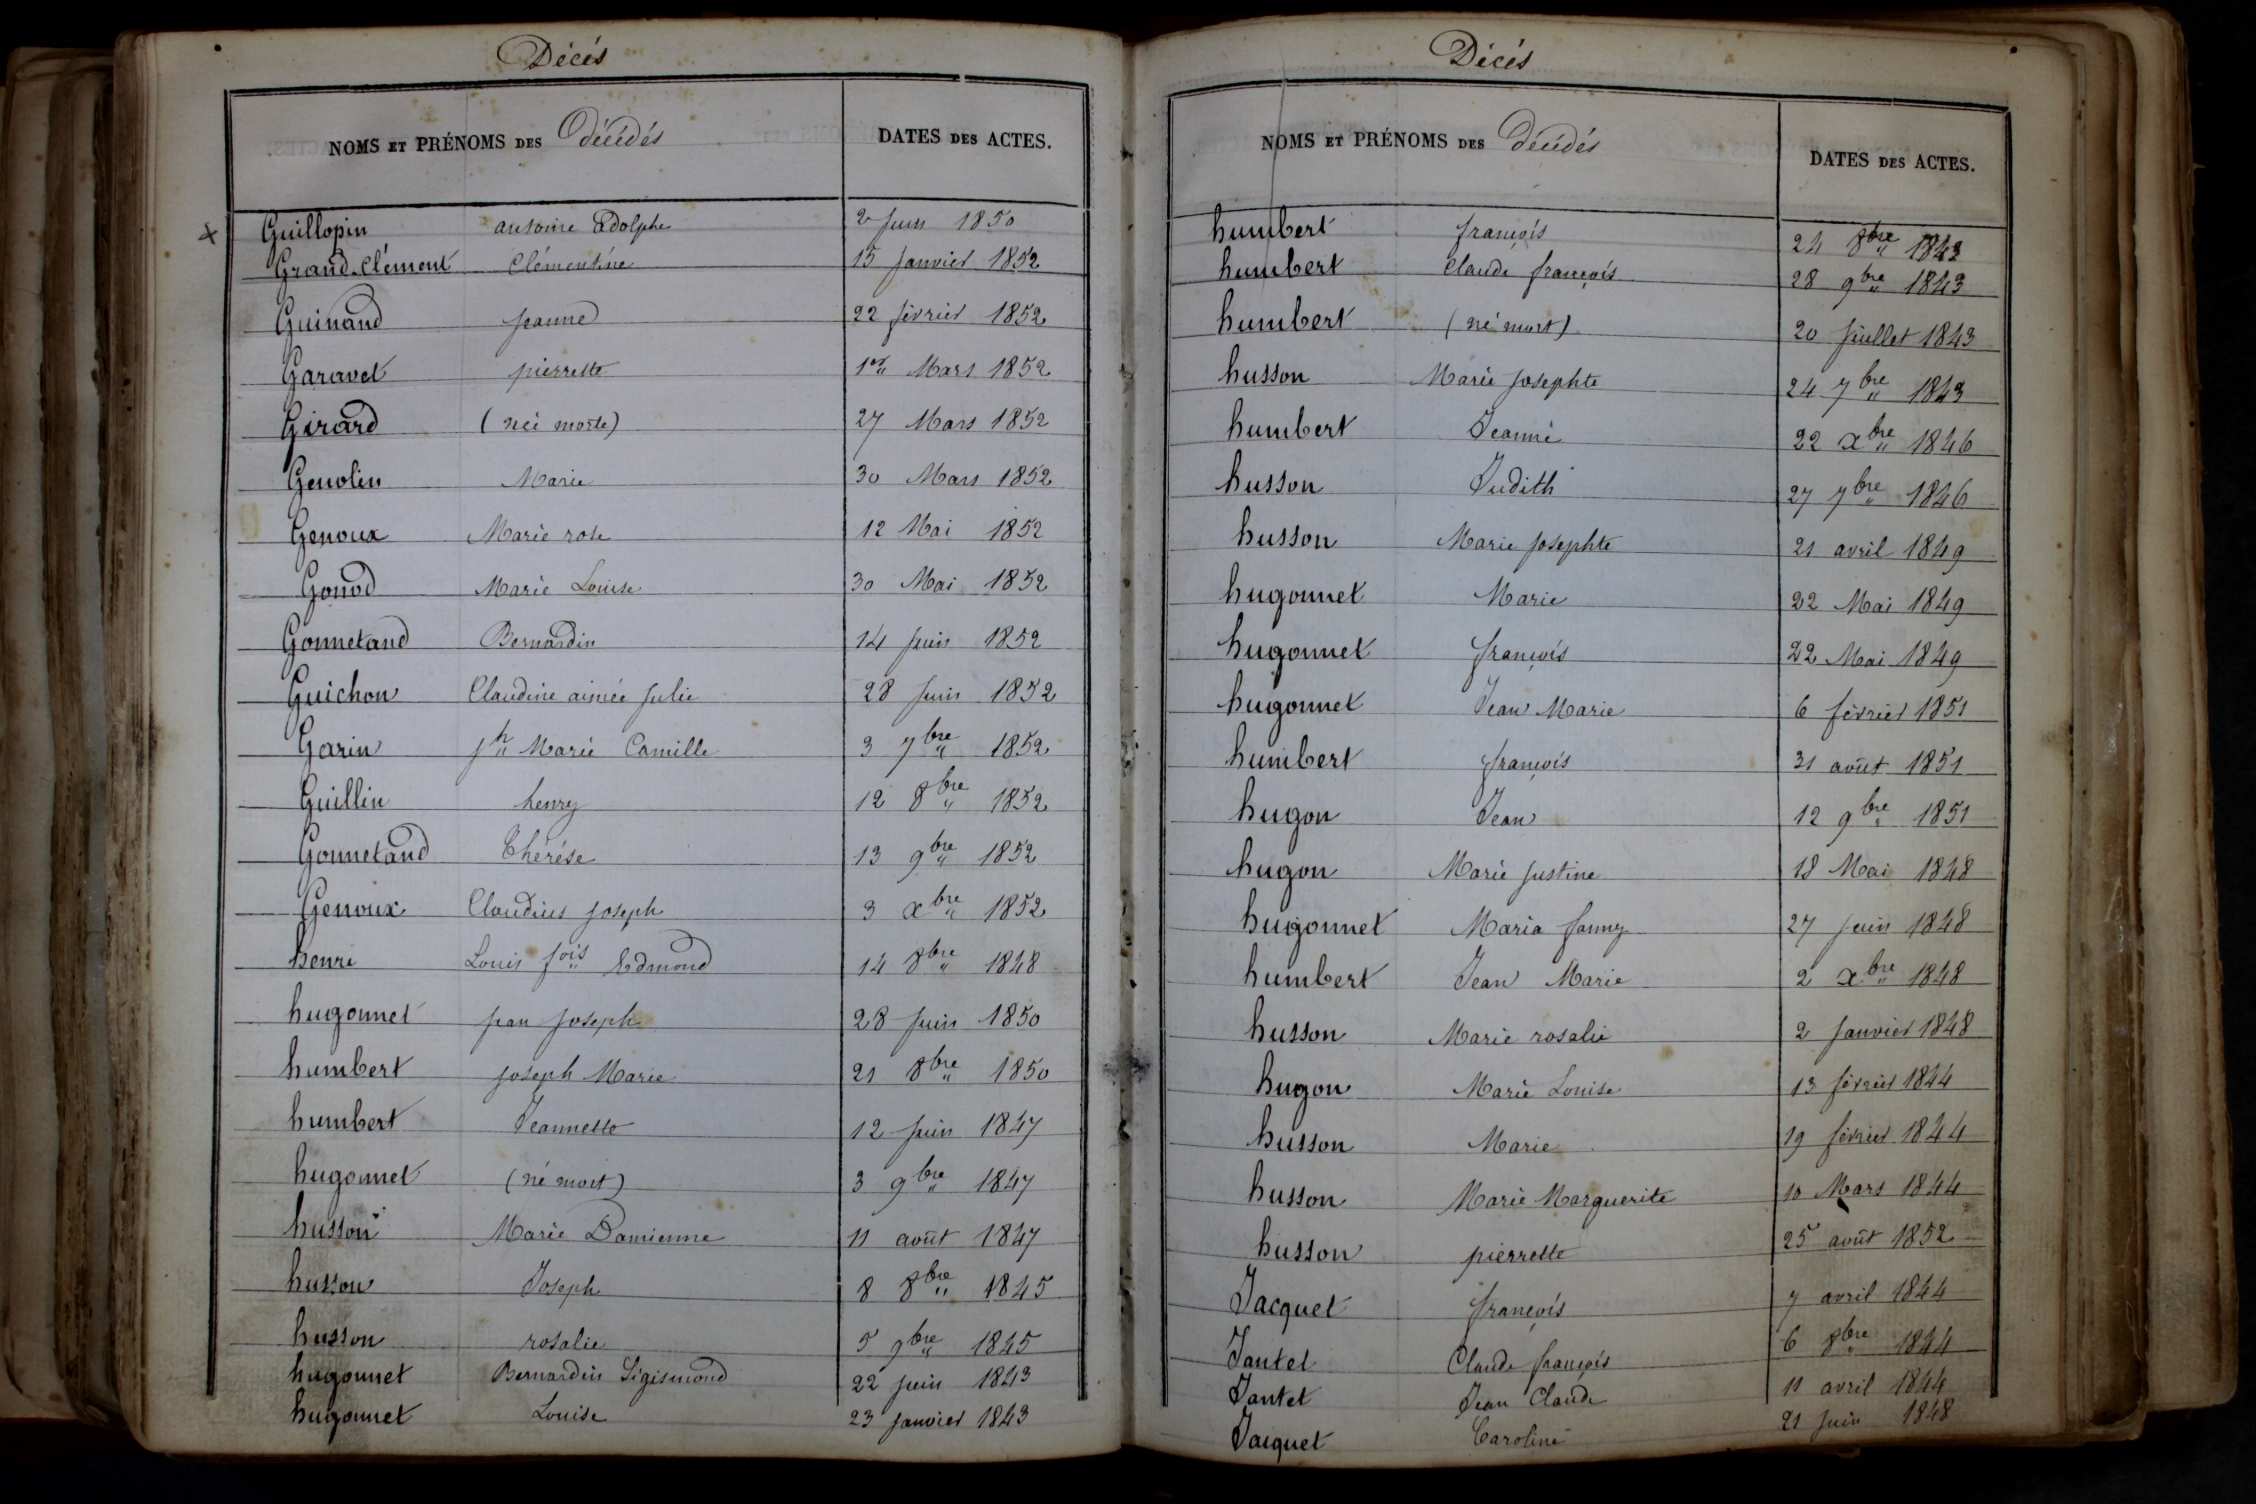 Décés
NOMS ET PRÉNOMS DES décédés DATES DES ACTES.
Guillopin antoine Adolphe 2 Juin 1850
Grand-Clément Clémentine 15 Janvier 1852
Guinand Jeanne 22 février 1852
Garavet pierrette 1er Mars 1852
Girard (née morte) 27 Mars 1852
Genolin Marie 30 Mars 1852
Genoux Marie rose 12 Mai 1852
Gonod Marie Louise 30 Mai 1852
Gonnetand Bernardin 14 Juin 1852
Guichon Claudine aimée Julie 28 Juin 1852
Garin Jh Marie Camille 3 7bre 1852
Guillin henry 12 8bre 1852
Gonnetand Thérése 13 9bre 1852
Genoux Claudius Joseph 3 xbre 1852
henri Louis fois Edmond 14 8bre 1848
hugonnet Jean Joseph 28 Juin 1850
humbert Joseph Marie 21 8bre 1850
humbert Jeannette 12 Juin 1847
hugonnet (né mort) 3 9bre 1847
husson Marie Damienne 11 août 1847
husson Joseph 8 8bre 1845
husson rosalie 5 9bre 1845
hugonnet Bernardin Sigismond 22 Juin 1843
hugonnet Louise 23 Janvier 1843
Décés
NOMS ET PRÉNOMS DES décédés DATES DES ACTES.
humbert françois 24 8bre 1843
humbert Claude françois 28 9bre 1843
humbert (né mort) 20 Juillet 1843
husson Marie Josephte 24 7bre 1843
humbert Jeanne 22 xbre 1846
husson Judith 27 7bre 1846
husson Marie Josephte 21 avril 1849
hugonnet Marie 22 Mai 1849
hugonnet françois 22 Mai 1849
hugonnet Jean Marie 6 février 1851
humbert françois 31 août 1851
hugon Jean 12 9bre 1851
hugon Marie Justine 18 Mai 1848
hugonnet Maria fanny 27 Juin 1848
humbert Jean Marie 2 xbre 1848
husson Marie rosalie 2 Janvier 1848
hugon Marie Louise 13 février 1844
husson Marie 19 février 1844
husson Marie Marguerite 10 Mars 1844
husson pierrette 25 août 1852
Jacquet françois 7 avril 1844
Jantet Claude françois 6 8bre 1844
Jantet Jean Claude 11 avril 1844
Jacquet Caroline 21 Juin 1848